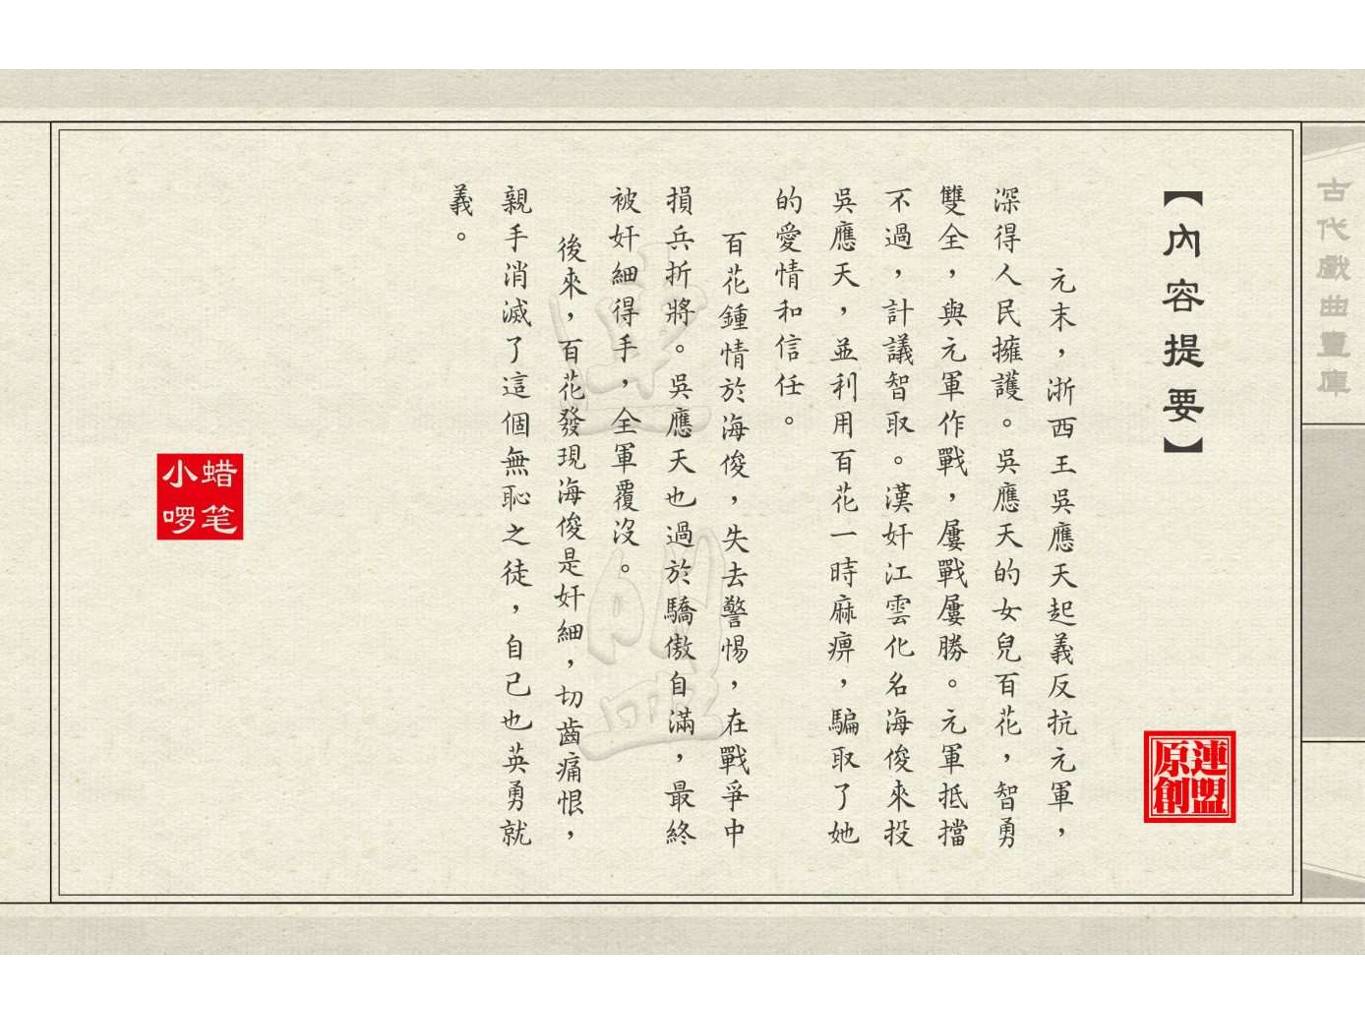 古代戲曲畫庫
【內容提要】
連盟
原創
元末，浙西王吳應天起義反抗元軍，
深得人民擁護。吳應天的女兒百花，智勇
雙全，與元軍作戰，屢戰屢勝。元軍抵擋
不過，計議智取。漢奸江雲化名海俊來投
吳應天，並利用百花一時麻痹，騙取了她
的愛情和信任。
百花鍾情於海俊，失去警惕，在戰爭中
損兵折將。吳應天也過於驕傲自滿，最終
被奸細得手，全軍覆沒。
後來，百花發現海俊是奸細，切齒痛恨，
親手消滅了這個無恥之徒，自己也英勇就
義。
連盟
蜡笔
小啰